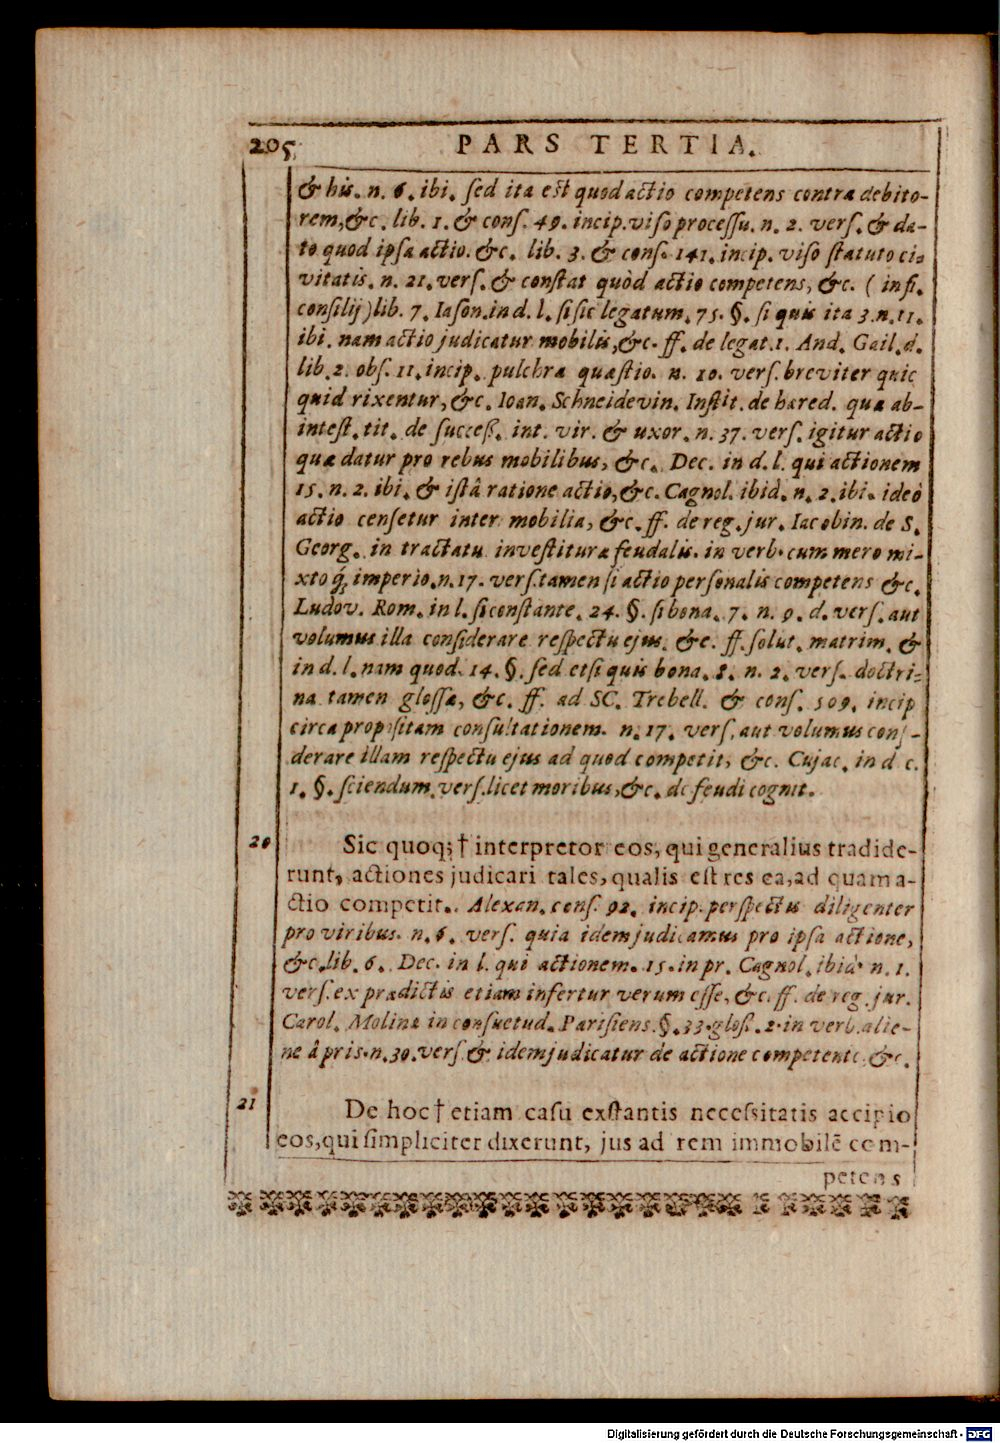 205 PARS TERTIA.
& his. n. 6. ibi. sed ita est quod actio competens contra debito-
rem, &c. lib. 1. & conſ. 49. incip. viſo proceſſu. n. 2. verſ. & da-
to quod ipſa actio. &c. lib. 3. & conſ. 141. incip. viſo ſtatuto ci-
vitatis. n. 21. verſ. & conſtat quòd actio competens, &c. ( in fi.
conſilij ) lib. 7. Iaſon. in d. l. ſi ſic legatum. 75. §. ſi quis ita 3. n. 11.
ibi. nam actio judicatur mobilis, &c. ff. de legat. 1. And. Gail. d.
lib. 2. obſ. 11. incip. pulchra quæſtio. n. 10. verſ. breviter quic
quid rixentur, &c. Ioan. Schneidevin. Inſtit. de hæred. quæ ab-
inteſt. tit. de ſucceſſ. int. vir. & uxor. n. 37. verſ. igitur actio
quæ datur pro rebus mobilibus, &c. Dec. in d. l. qui actionem
15. n. 2. ibi. & iſtâ ratione actio, &c. Cagnol. ibid. n. 2. ibi. ideò
actio cenſetur inter mobilia, &c. ff. de reg. jur. Iacobin. de S.
Georg. in tractatu inveſtituræ feudalis. in verb. cum mero mi-
xto q́; imperio. n. 17. verſ. tamen ſi actio perſonalis competens &c.
Ludov. Rom. in l. ſi conſtante. 24. §. ſi bona. 7. n. 9. d. verſ. aut
volumus illa conſiderare reſpectu ejus, &c. ff. ſolut. matrim. &
in d. l. nam quod. 14. §. ſed etſi quis bona. 8. n. 2. verſ. doctri-
na tamen gloſſæ, &c. ff. ad SC. Trebell. & conſ. 509. incip
circa propoſitam conſultationem. n. 17. verſ. aut volumus conſ-
derare illam reſpectu ejus ad quod competit, &c. Cujac. in d c.
1. §. ſciendum. verſ. licet moribus, &c. de feudi cognit.
20 Sic quoq; † interpretor eos, qui generalius tradide-
runt, actiones judicari tales, qualis eſt res ea, ad quam a-
ctio competit. Alexan. conſ. 92. incip. perſpectis diligenter
pro viribus. n. 6. verſ. quia idem judicamus pro ipſa actione,
&c. lib. 6. Dec. in l. qui actionem. 15. in pr. Cagnol. ibid. n. 1.
verſ. ex prædictis etiam infertur verum eſſe, &c. ff. de reg. jur.
Carol. Molinæ in conſuetud. Pariſiens. §. 33. gloſ. 2. in verb. alie-
ne â pris. n. 30. verſ. & idem judicatur de actione competente, &c.
21 De hoc † etiam caſu exſtantis neceſsitatis accipio
eos, qui ſimpliciter dixerunt, jus ad rem immobilē com-
petens
Digitalisierung gefördert durch die Deutsche Forschungsgemeinschaft - DFG